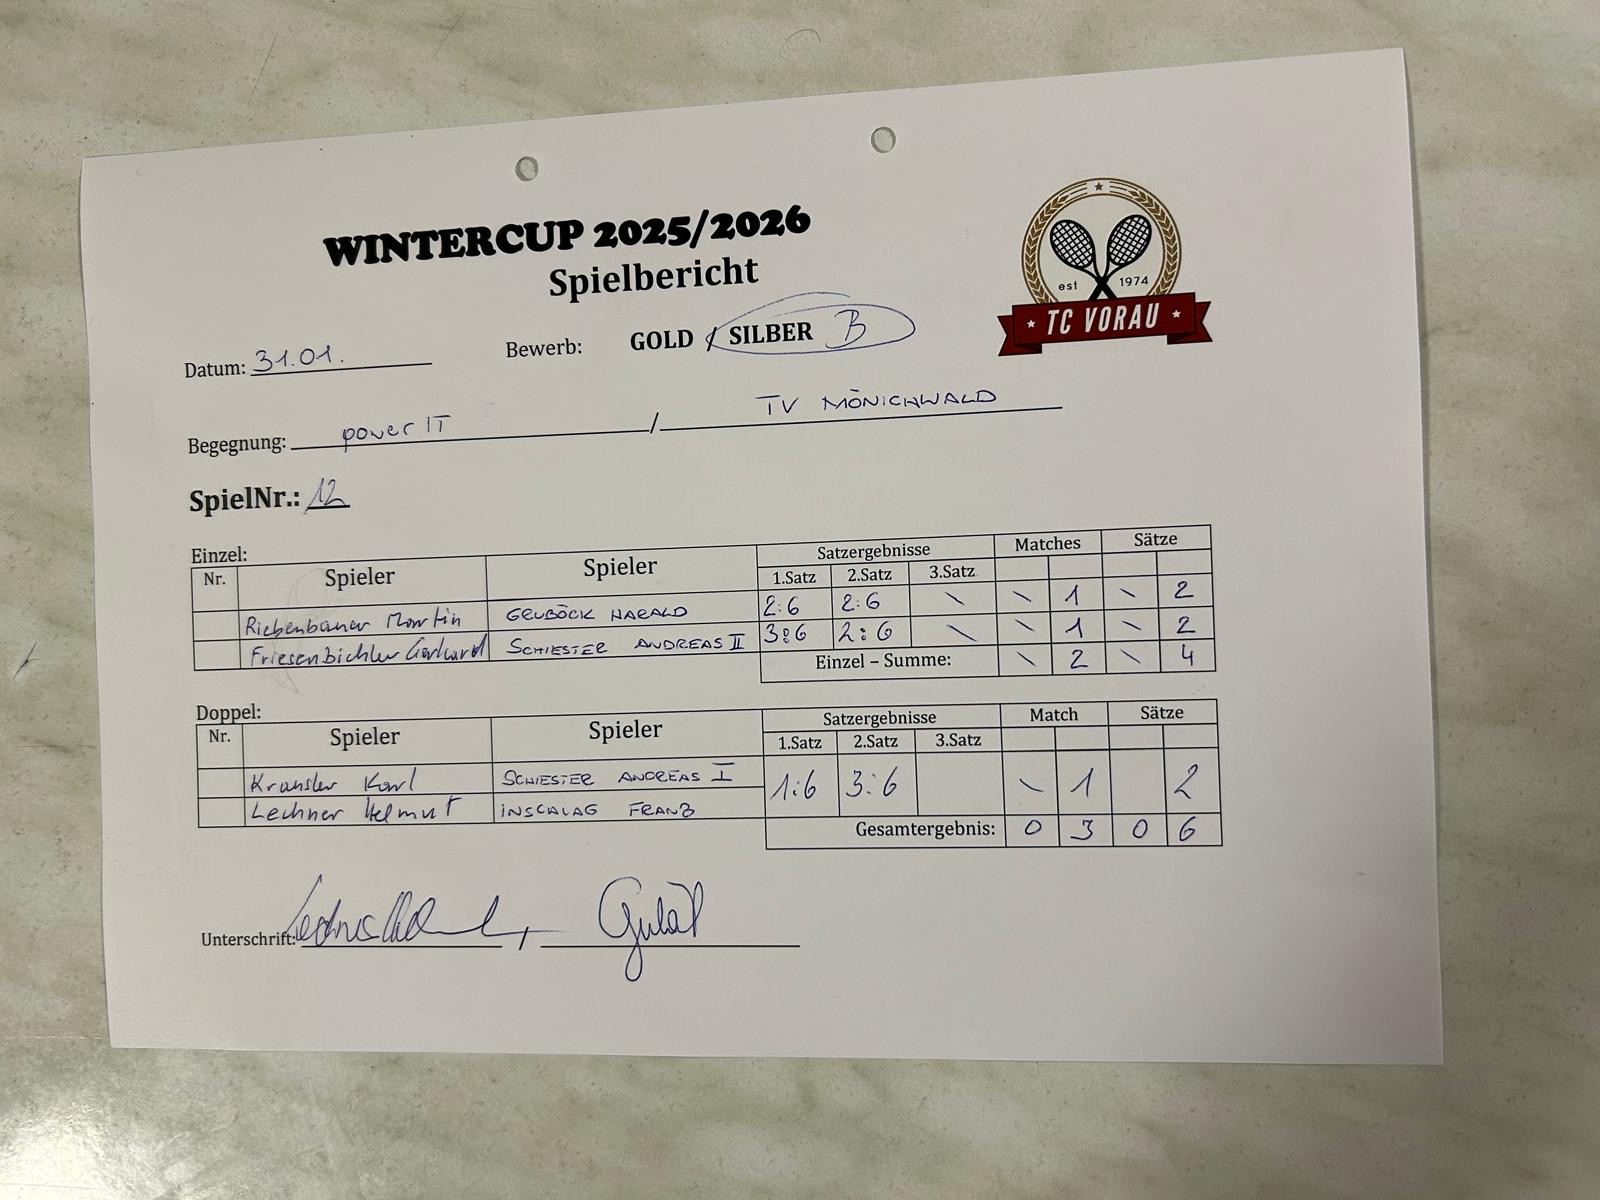 WINTERCUP 2025/2026
Spielbericht
est 1974
TC VORAU
Datum: 31.01. Bewerb: GOLD / SILBER B
Begegnung: power IT / TV MÖNICHWALD
SpielNr.: 12
Einzel:
Nr. Spieler Spieler Satzergebnisse Matches Sätze
1.Satz 2.Satz 3.Satz
Riebenbauer Martin GRUBÖCK HARALD 2:6 2:6 \ \ 1 \ 2
Friesenbichler Gerhard SCHIESTER ANDREAS II 3:6 2:6 \ \ 1 \ 2
Einzel – Summe: \ 2 \ 4
Doppel:
Nr. Spieler Spieler Satzergebnisse Match Sätze
1.Satz 2.Satz 3.Satz
Kransler Karl SCHIESTER ANDREAS I 1:6 3:6 \ 1 2
Lechner Helmut INSCHLAG FRANZ
Gesamtergebnis: 0 3 0 6
Unterschrift: